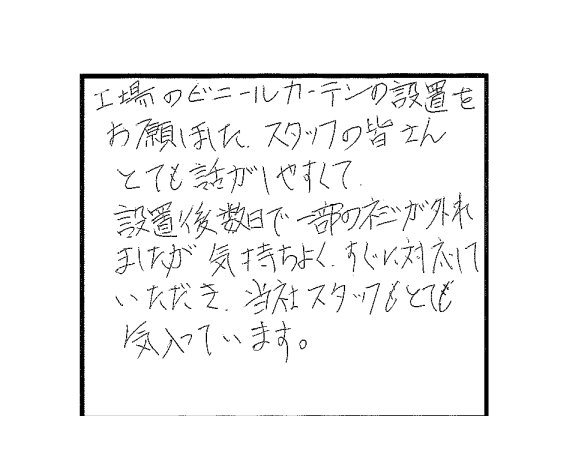 工場のビニールカーテンの設置を
お願いしました。スタッフの皆さん
とても話がしやすくて
設置後数日で一部のネジが外れ
ましたが気持ちよく、すぐに対応して
いただき、当社スタッフもとても
気入っています。